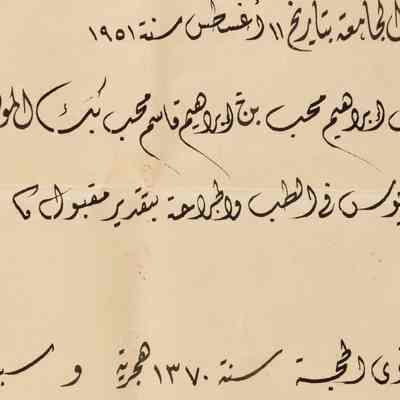 الجامعة بتاريخ ١١ أغسطس سنة ١٩٥١
ابراهيم محب بن ابراهيم قاسم محب بك المو
يوس فى الطب والجراحة بتقدير مقبول
ذى الحجة سنة ١٣٧٠ هجرية و سب